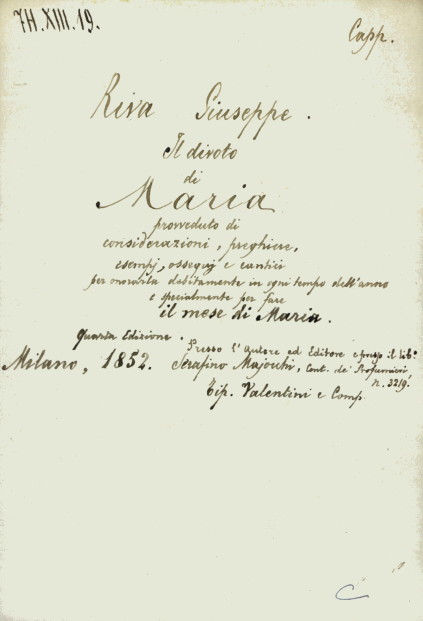 7H.XIII.19.
Capp.
Riva Giuseppe.
Il divoto
di
Maria
provveduto di
considerazioni, preghiere,
esempj, ossequj e cantici
per onorarla debitamente in ogni tempo dell'anno
e specialmente per fare
il mese di Maria.
Quarta Edizione.
Presso l'Autore ed Editore e presso il lib.o
Milano, 1852. Serafino Majocchi, Cont. de' Profumieri,
n. 3219.
Tip. Valentini e Comp.
C